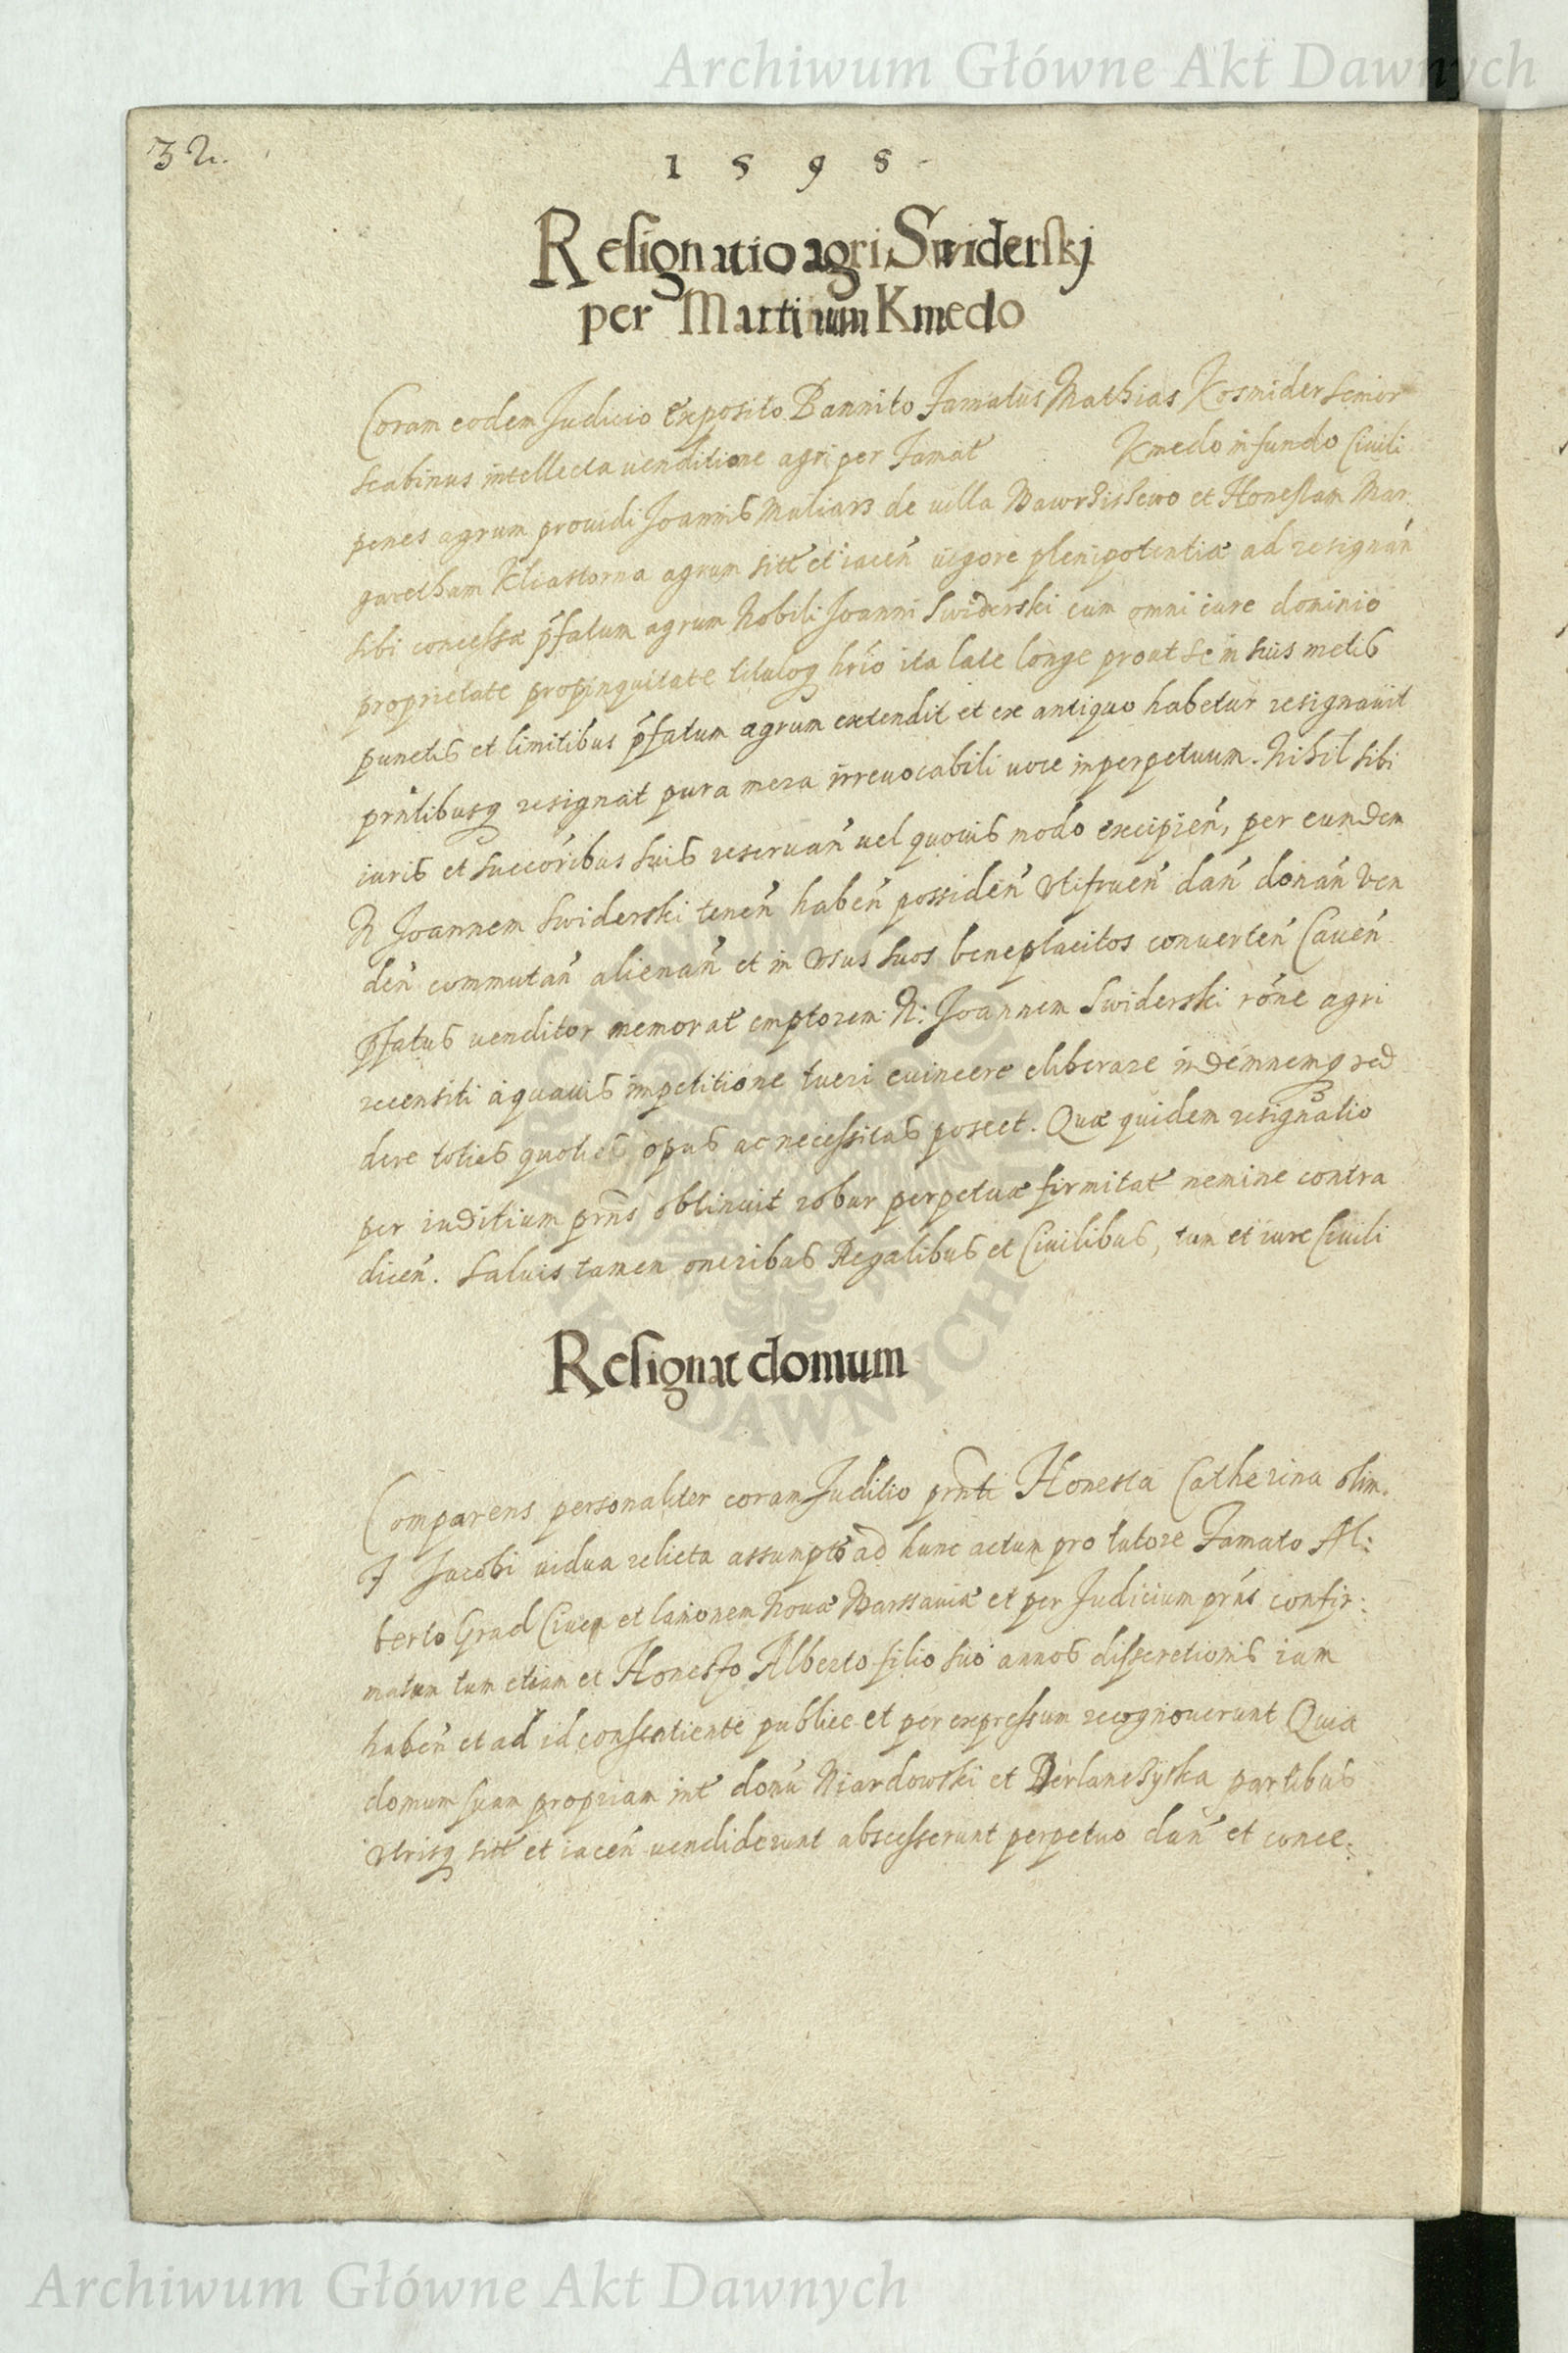 Archiwum Główne Akt Dawnych
32.
1 5 9 8
Resignatio agri Swiderskj
per Martinum Kmedo
Coram eodem Judicio Exposito Bannito Famatus Mathias Kosmider Senior
Scabinus intellecta venditione agri per Famat̃ Kmedo in fundo Ciuili
penes agrum prouidi Joannis Muliarz de uilla et Honestam Mar
garetham agrum sitt̃ et iaceñ uigore plenipotentiæ ad resignañ
sibi concessæ p̃fatum agrum Nobili Joanni Swiderski cum omni iure dominio
proprietate propinquitate tituloq hrio ita late longe prout se in suis metis
punctis et limitibus p̃fatum agrum extendit et ex antiquo habetur resignauit
prñtibusq resignat pura mera irreuocabili uoce inperpetuum. Nihil sibi
iuris et succõribus suis reseruañ uel quouis modo excipieñ, per eundem
N Joannem Swiderski teneñ habeñ possideñ Vtifrueñ dañ donañ Ven
deñ commutañ alienañ et in Vsus suos beneplacitos conuerteñ Caueñ
p̃fatus uenditor memorat̃ emptorem N: Joannem Swiderski rõne agri
recensiti a quauis impetitione tueri euincere eliberare indemnemq red
dere toties quoties opus ac necessitas poscet. Quæ quidem resignatio
per iuditium prñs obtinuit robur perpetuæ firmitat̃ nemine contra
diceñ. Saluis tamen oneribus Regalibus et Ciuilibus, tum et iure Ciuili
Resignat domum
Comparens personaliter coram Juditio prñti Honesta Catherina olim
F Jacobi uidua relicta assumpto ad hunc actum pro tutore Famato Al:
berto Grad Ciuem et lanionem Nouæ Warssauiæ et per Judicium prñs confir:
matum tum etiam et Honesto Alberto filio suo annos disscretionis iam
habeñ et ad id conssentiente publice et per expressum recognouerunt Quia
domum suam propriam int̃ domũ Niardowski et partibus
Vtrisq sitt̃ et iaceñ uendiderunt abscesserunt perpetuo dañ et conce:
Archiwum Główne Akt Dawnych